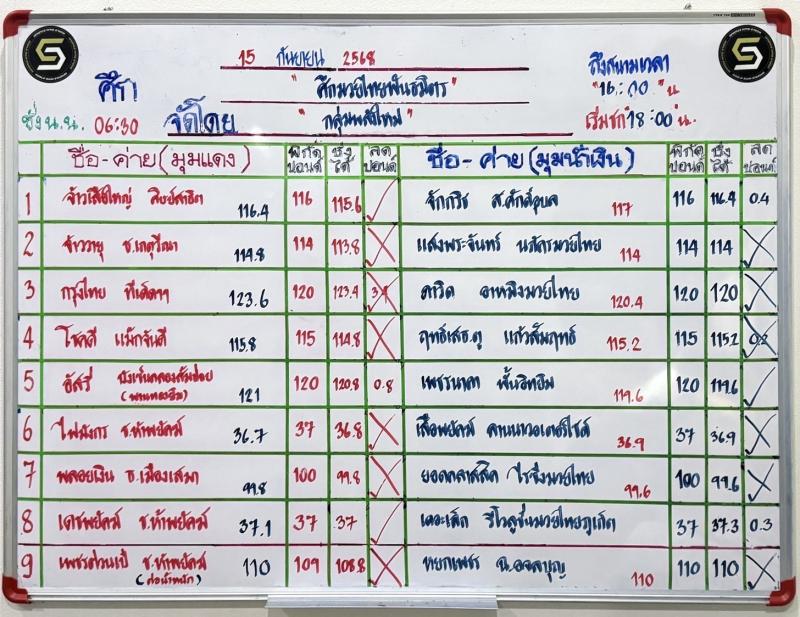 15 กันยายน 2568
"ศึกมวยไทยพันธมิตร"
ถึงสนามเวลา
"16:00" น.
ศึกา
ชั่ง น.น. 06:30
จัดโดย
"กลุ่มพลังใหม่"
เริ่มชก 18:00 น.
ชื่อ-ค่าย (มุมแดง) พิกัดปอนด์ ชั่งได้ ลดปอนด์ ชื่อ-ค่าย (มุมน้ำเงิน) พิกัดปอนด์ ชั่งได้ ลดปอนด์
1 จ้าวเสือใหญ่ ศิษย์สาธิต 116.4 116 115.6 จักกริช ส.ศักดิ์อุบล 117 116 116.4 0.4
2 จ้าววายุ ช.เกตุวีณา 114.8 114 113.8 แสงพระจันทร์ นภัทรมวยไทย 114 114 114
3 กรุงไทย ทีเด็ดฯ 123.6 120 123.4 3.4 ดาวิด อาหมิงมวยไทย 120.4 120 120
4 โชคดี แม็กจันดี 115.8 115 114.8 ฤทธิ์เสธ.ตู แก้วสัมฤทธิ์ 115.2 115 115.2 0.2
5 อัสรี่ บังเซ็นคลองส้มป่อย 121 120 120.8 0.8 เพชรนาคา พื้นวิทยิม 119.6 120 119.6
(พานทองยิม)
6 ไฟมังกร ช.ห้าพยัคฆ์ 36.7 37 36.8 เสือพยัคฆ์ ลานนาวอเตอร์ไซด์ 36.9 37 36.9
7 พลอยเงิน ธ.เมืองเสมา 99.8 100 99.8 ยอดคลาสสิค ไรซิ่งมวยไทย 99.6 100 99.6
8 เดชพยัคฆ์ ช.ห้าพยัคฆ์ 37.1 37 37 เดอะเล็ก รีโวลูชั่นมวยไทยภูเก็ต 37 37.3 0.3
9 เพชรส่วนเป้ ช.ห้าพยัคฆ์ 110 109 108.8 หยกเพชร ฉ.อจลบุญ 110 110 110
(ต่อน้ำหนัก)